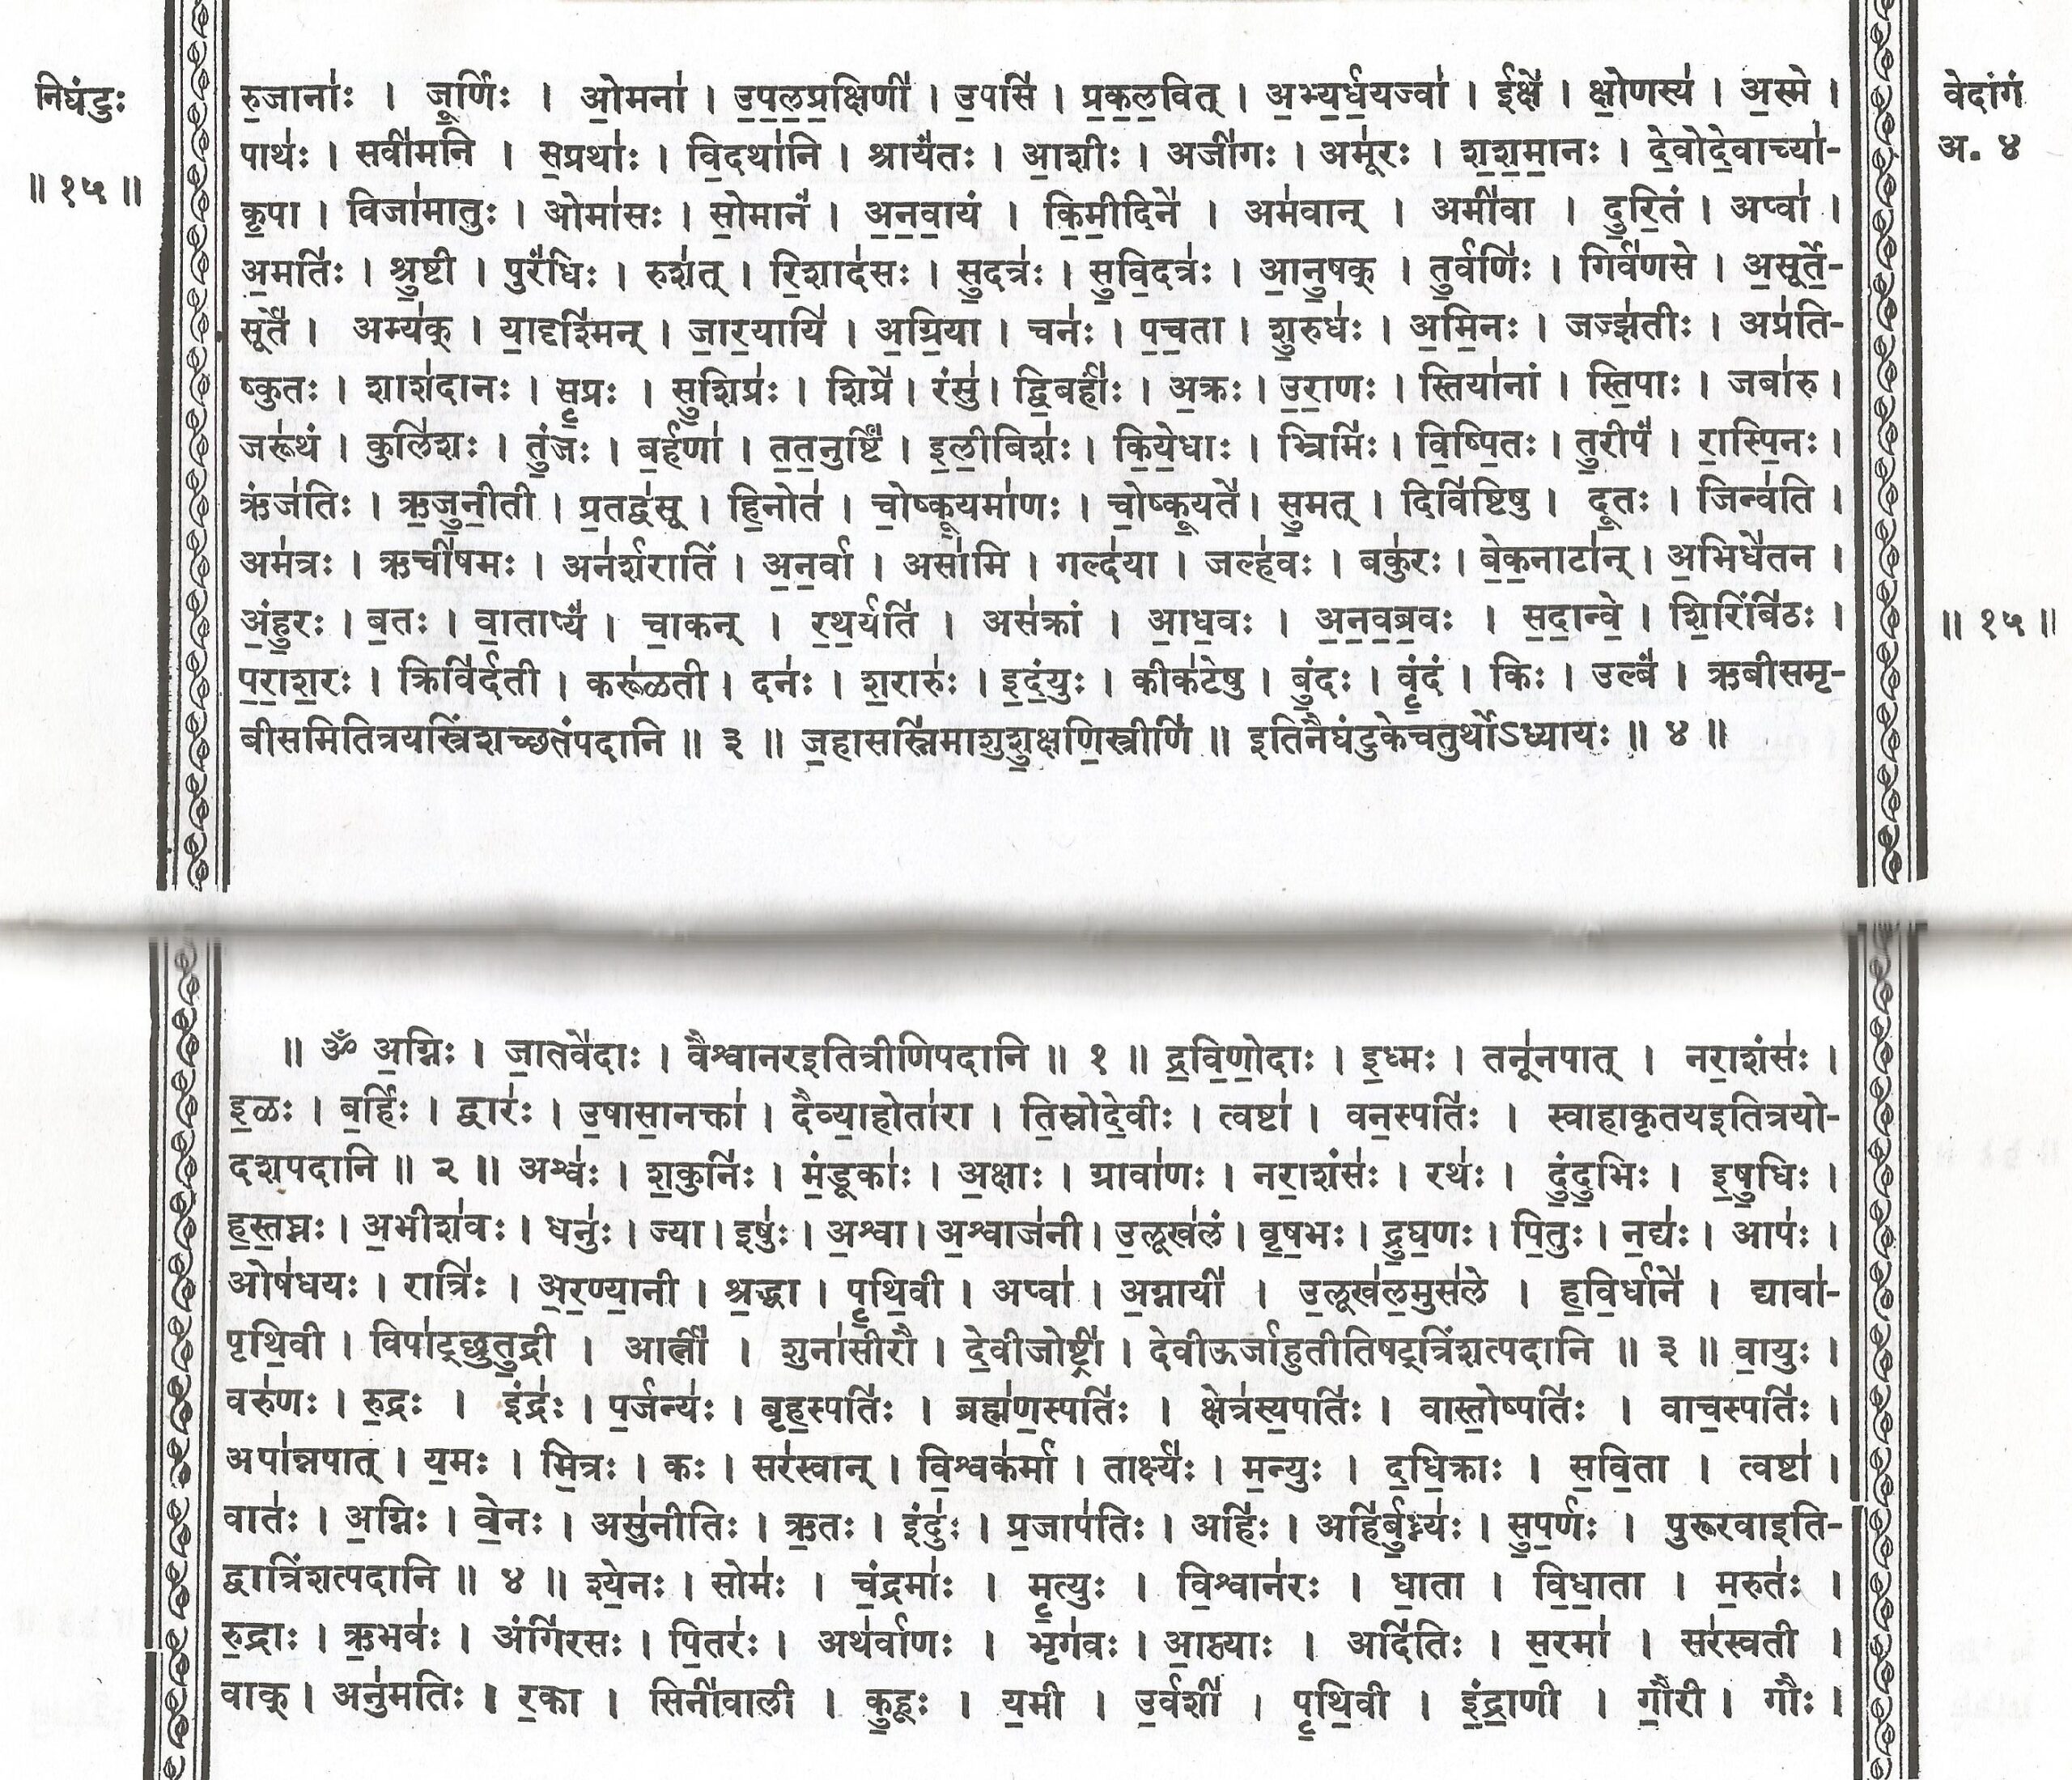 निघंटुः
॥ १५ ॥
रु॒जाना॑ः । जू॒र्णिः॑ । ओ॒मना॑ । उ॒प॒ल॒प्र॒क्षिणी॑ । उ॒पसि॑ । प्र॒क॒ल॒वित् । अ॒भ्य॒र्ध॒यज्वा॑ । ईक्षे॑ । क्षो॒णस्य॑ । अ॒स्मे ।
पाथः॑ । सवी॑मनि । स॒प्रथाः॑ । वि॒दथा॑नि । श्राय॑तः । आ॒शीः । अजी॑गः । अमू॑रः । श॒श॒मा॒नः । दे॒वोदे॒वाच्या॑-
कृ॒पा । विजा॑मातुः । ओमा॑सः । सो॒मानं॑ । अ॒न॒वा॒यं । कि॒मी॒दिने॑ । अम॑वान् । अमी॑वा । दु॒रि॒तं । अप्वा॑ ।
अ॒मतिः॑ । श्रु॒ष्टी । पुरं॑धिः । रुश॑त् । रि॒शाद॑सः । सु॒दत्रः॑ । सु॒वि॒दत्रः॑ । आ॒नु॒षक् । तु॒र्वणिः॑ । गिर्व॑णसे । अ॒सूर्ते॒-
सूर्ते॑ । अम्य॑क् । या॒दृश्मि॑न् । जा॒र॒यायि॑ । अ॒ग्रि॒या । चनः॑ । प॒च॒ता । शु॒रुधः॑ । अ॒मि॒नः । जज्झ॑तीः । अप्र॑ति-
ष्कुतः । शाश॑दानः । सृ॒प्रः । सु॒शिप्रः॑ । शिप्रे॑ । रंसु॑ । द्वि॒बर्हाः॑ । अ॒क्रः । उ॒रा॒णः । स्तिया॑नां । स्ति॒पाः । जबा॑रु ।
जरू॑थं । कुलि॑शः । तुं॒जः । ब॒र्हणा॑ । त॒त॒नुष्टिं॑ । इ॒ली॒बिशः॑ । कि॒ये॒धाः । भ्रिमिः॑ । वि॒ष्पि॒तः । तु॒रीपं॑ । रा॒स्पि॒नः ।
ऋंज॑तिः । ऋ॒जु॒नी॒ती । प्र॒तद्व॑सू । हि॒नोत॑ । चो॒ष्कू॒यमा॑णः । चो॒ष्कू॒यते॑ । सु॒मत् । दिवि॑ष्टिषु । दू॒तः । जिन्व॑ति ।
अम॑त्रः । ऋची॑षमः । अन॑र्शरातिं । अ॒न॒र्वा । असा॑मि । गल्द॑या । जल्ह॑वः । बकु॑रः । बे॒क॒नाटा॑न् । अ॒भिधे॑तन ।
अं॒हु॒रः । ब॒तः । वा॒ताप्यं॑ । चा॒कन् । र॒थ॒र्यति॑ । अस॑क्रां । आ॒ध॒वः । अ॒न॒व॒ब्र॒वः । स॒दा॒न्वे॒ । शि॒रिंबि॑ठः ।
प॒रा॒श॒रः । क्रिवि॑र्दती । करू॑ळती । दनः॑ । श॒रारुः॑ । इ॒दं॒युः । कीक॑टेषु । बुं॒दः । वृं॒दं । किः । उल्बं॑ । ऋबीसमृ-
बीसमितित्रयस्त्रिंशच्छतंपदानि ॥ ३ ॥ ज॒हासस्नि॑माशुशु॒क्षणि॒स्त्रीणि॑ ॥ इतिनैघंटुकेचतुर्थोऽध्यायः ॥ ४ ॥
वेदांगं
अ. ४
॥ १५ ॥
॥ ॐ अ॒ग्निः । जा॒तवे॑दाः । वैश्वानरइतित्रीणिपदानि ॥ १ ॥ द्र॒वि॒णो॒दाः । इ॒ध्मः । तनू॒नपात् । नरा॒शंसः॑ ।
इ॒ळः । ब॒र्हिः॑ । द्वारः॑ । उ॒षासा॒नक्ता॑ । दैव्या॒होता॑रा । ति॒स्रोदे॒वीः । त्वष्टा॑ । वन॒स्पतिः॑ । स्वाहाकृतयइतित्रयो-
दशपदानि ॥ २ ॥ अश्वः॑ । श॒कुनिः॑ । मं॒डूकाः॑ । अ॒क्षाः । ग्रावा॑णः । नरा॒शंसः॑ । रथः॑ । दुं॒दु॒भिः । इ॒षु॒धिः ।
ह॒स्त॒घ्नः । अ॒भीश॑वः । धनुः॑ । ज्या । इषुः॑ । अ॒श्वा । अ॒श्वाज॑नी । उ॒लूख॑लं । वृ॒ष॒भः । द्रु॒घ॒णः । पि॒तुः । न॒द्यः॑ । आपः॑ ।
ओष॑धयः । रात्रिः॑ । अ॒र॒ण्या॒नी । श्र॒द्धा । पृ॒थि॒वी । अप्वा॑ । अ॒ग्नायी॑ । उ॒लूख॑ल॒मुस॑ले । ह॒वि॒र्धाने॑ । द्यावा॑-
पृथि॒वी । विपा॑ट्छुतु॒द्री । आर्त्नी॑ । शुना॑सीरौ॑ । दे॒वीजोष्ट्री॑ । देवीऊर्जाहुतीतिषट्त्रिंशत्पदानि ॥ ३ ॥ वा॒युः ।
वरु॑णः । रु॒द्रः । इंद्रः॑ । प॒र्जन्यः॑ । बृह॒स्पतिः॑ । ब्रह्म॑ण॒स्पतिः॑ । क्षेत्र॑स्य॒पतिः॑ । वास्तो॒ष्पतिः॑ । वाच॒स्पतिः॑ ।
अपा॑न्नपात् । य॒मः । मि॒त्रः । कः । सर॑स्वान् । वि॒श्वक॑र्मा । तार्क्ष्यः॑ । म॒न्युः । द॒धि॒क्राः । स॒वि॒ता । त्वष्टा॑ ।
वातः॑ । अ॒ग्निः । वे॒नः । असु॑नीतिः । ऋ॒तः । इंदुः॑ । प्र॒जाप॑तिः । अहिः॑ । अहि॑र्बु॒ध्न्यः॑ । सु॒प॒र्णः । पुरूरवाइति-
द्वात्रिंशत्पदानि ॥ ४ ॥ श्ये॒नः । सोमः॑ । चं॒द्रमाः॑ । मृ॒त्युः । वि॒श्वान॑रः । धा॒ता । वि॒धा॒ता । म॒रुतः॑ ।
रु॒द्राः । ऋ॒भवः॑ । अंगि॑रसः । पि॒तरः॑ । अथ॑र्वाणः । भृग॑वः । आ॒प्त्याः । अदि॑तिः । स॒रमा॑ । सर॑स्वती ।
वाक् । अनु॑मतिः । र॒का । सिनी॑वाली । कु॒हूः । य॒मी । उ॒र्वशी॑ । पृ॒थि॒वी । इं॒द्रा॒णी । गौ॒री । गौः॑ ।